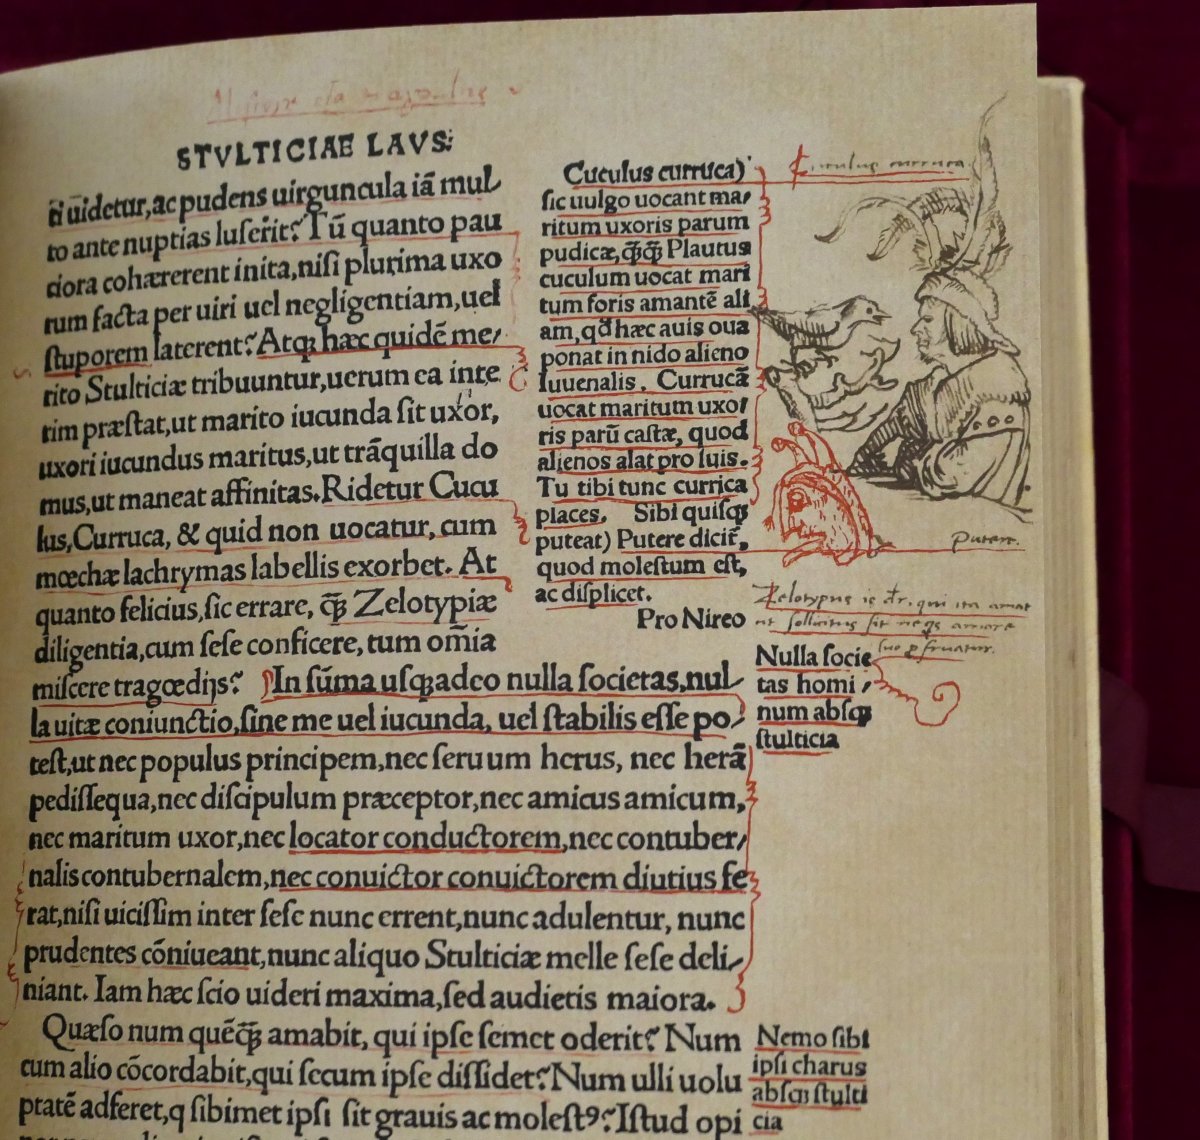 STVLTICIAE LAVS:
ti uidetur,ac pudens uirguncula iā mul-
to ante nuptias luserit? Tū quanto pau
ciora cohærerent inita,nisi plurima uxo
rum facta per uiri uel negligentiam,uel
stuporem laterent? Atq; hæc quidē me-
rito Stulticiæ tribuuntur,uerum ea inte
rim præstat,ut marito iucunda sit uxor,
uxori iucundus maritus,ut trāquilla do
mus,ut maneat affinitas. Ridetur Cucu
lus,Curruca, & quid non uocatur, cum
mœchæ lachrymas labellis exorbet. At
quanto felicius,sic errare, q̄ꝫ Zelotypiæ
diligentia,cum sese conficere, tum om̄ia
miscere tragœdijs? In sūma usq;adeo nulla societas,nul-
la uitæ coniunctio,sine me uel iucunda, uel stabilis esse po-
test,ut nec populus principem,nec seruum herus, nec herā
pedissequa,nec discipulum præceptor,nec amicus amicum,
nec maritum uxor,nec locator conductorem,nec contuber-
nalis contubernalem,nec conuictor conuictorem diutius fe
rat,nisi uicissim inter sese nunc errent,nunc adulentur, nunc
prudentes cōniueant,nunc aliquo Stulticiæ melle sese deli-
niant. Iam hæc scio uideri maxima,sed audietis maiora.
Quæso num quēq̄ꝫ amabit, qui ipse semet oderit? Num
cum alio cōcordabit,qui secum ipse dissidet? Num ulli uolu
ptatē adferet,q sibimet ipsi sit grauis ac molestꝰ? Istud opi
Cuculus curruca)
sic uulgo uocant ma-
ritum uxoris parum
pudicæ,q̄ꝫq̄ꝫ Plautus
cuculum uocat mari
tum foris amantē ali
am,qd hæc auis oua
ponat in nido alieno
Iuuenalis. Currucā
uocat maritum uxo-
ris parū castæ, quod
alienos alat pro suis.
Tu tibi tunc currica
places. Sibi quisq;
puteat) Putere dicit,
quod molestum est,
ac displicet.
Pro Nireo
Cuculus curruca.
Putere.
Zelotypus is dr. qui ita amat
ut sollicitus sit neqs amore
suo p fruatur.
Nulla socie
tas homi-
num absq;
stulticia
Nemo sibi
ipsi charus
absq; stulti
cia